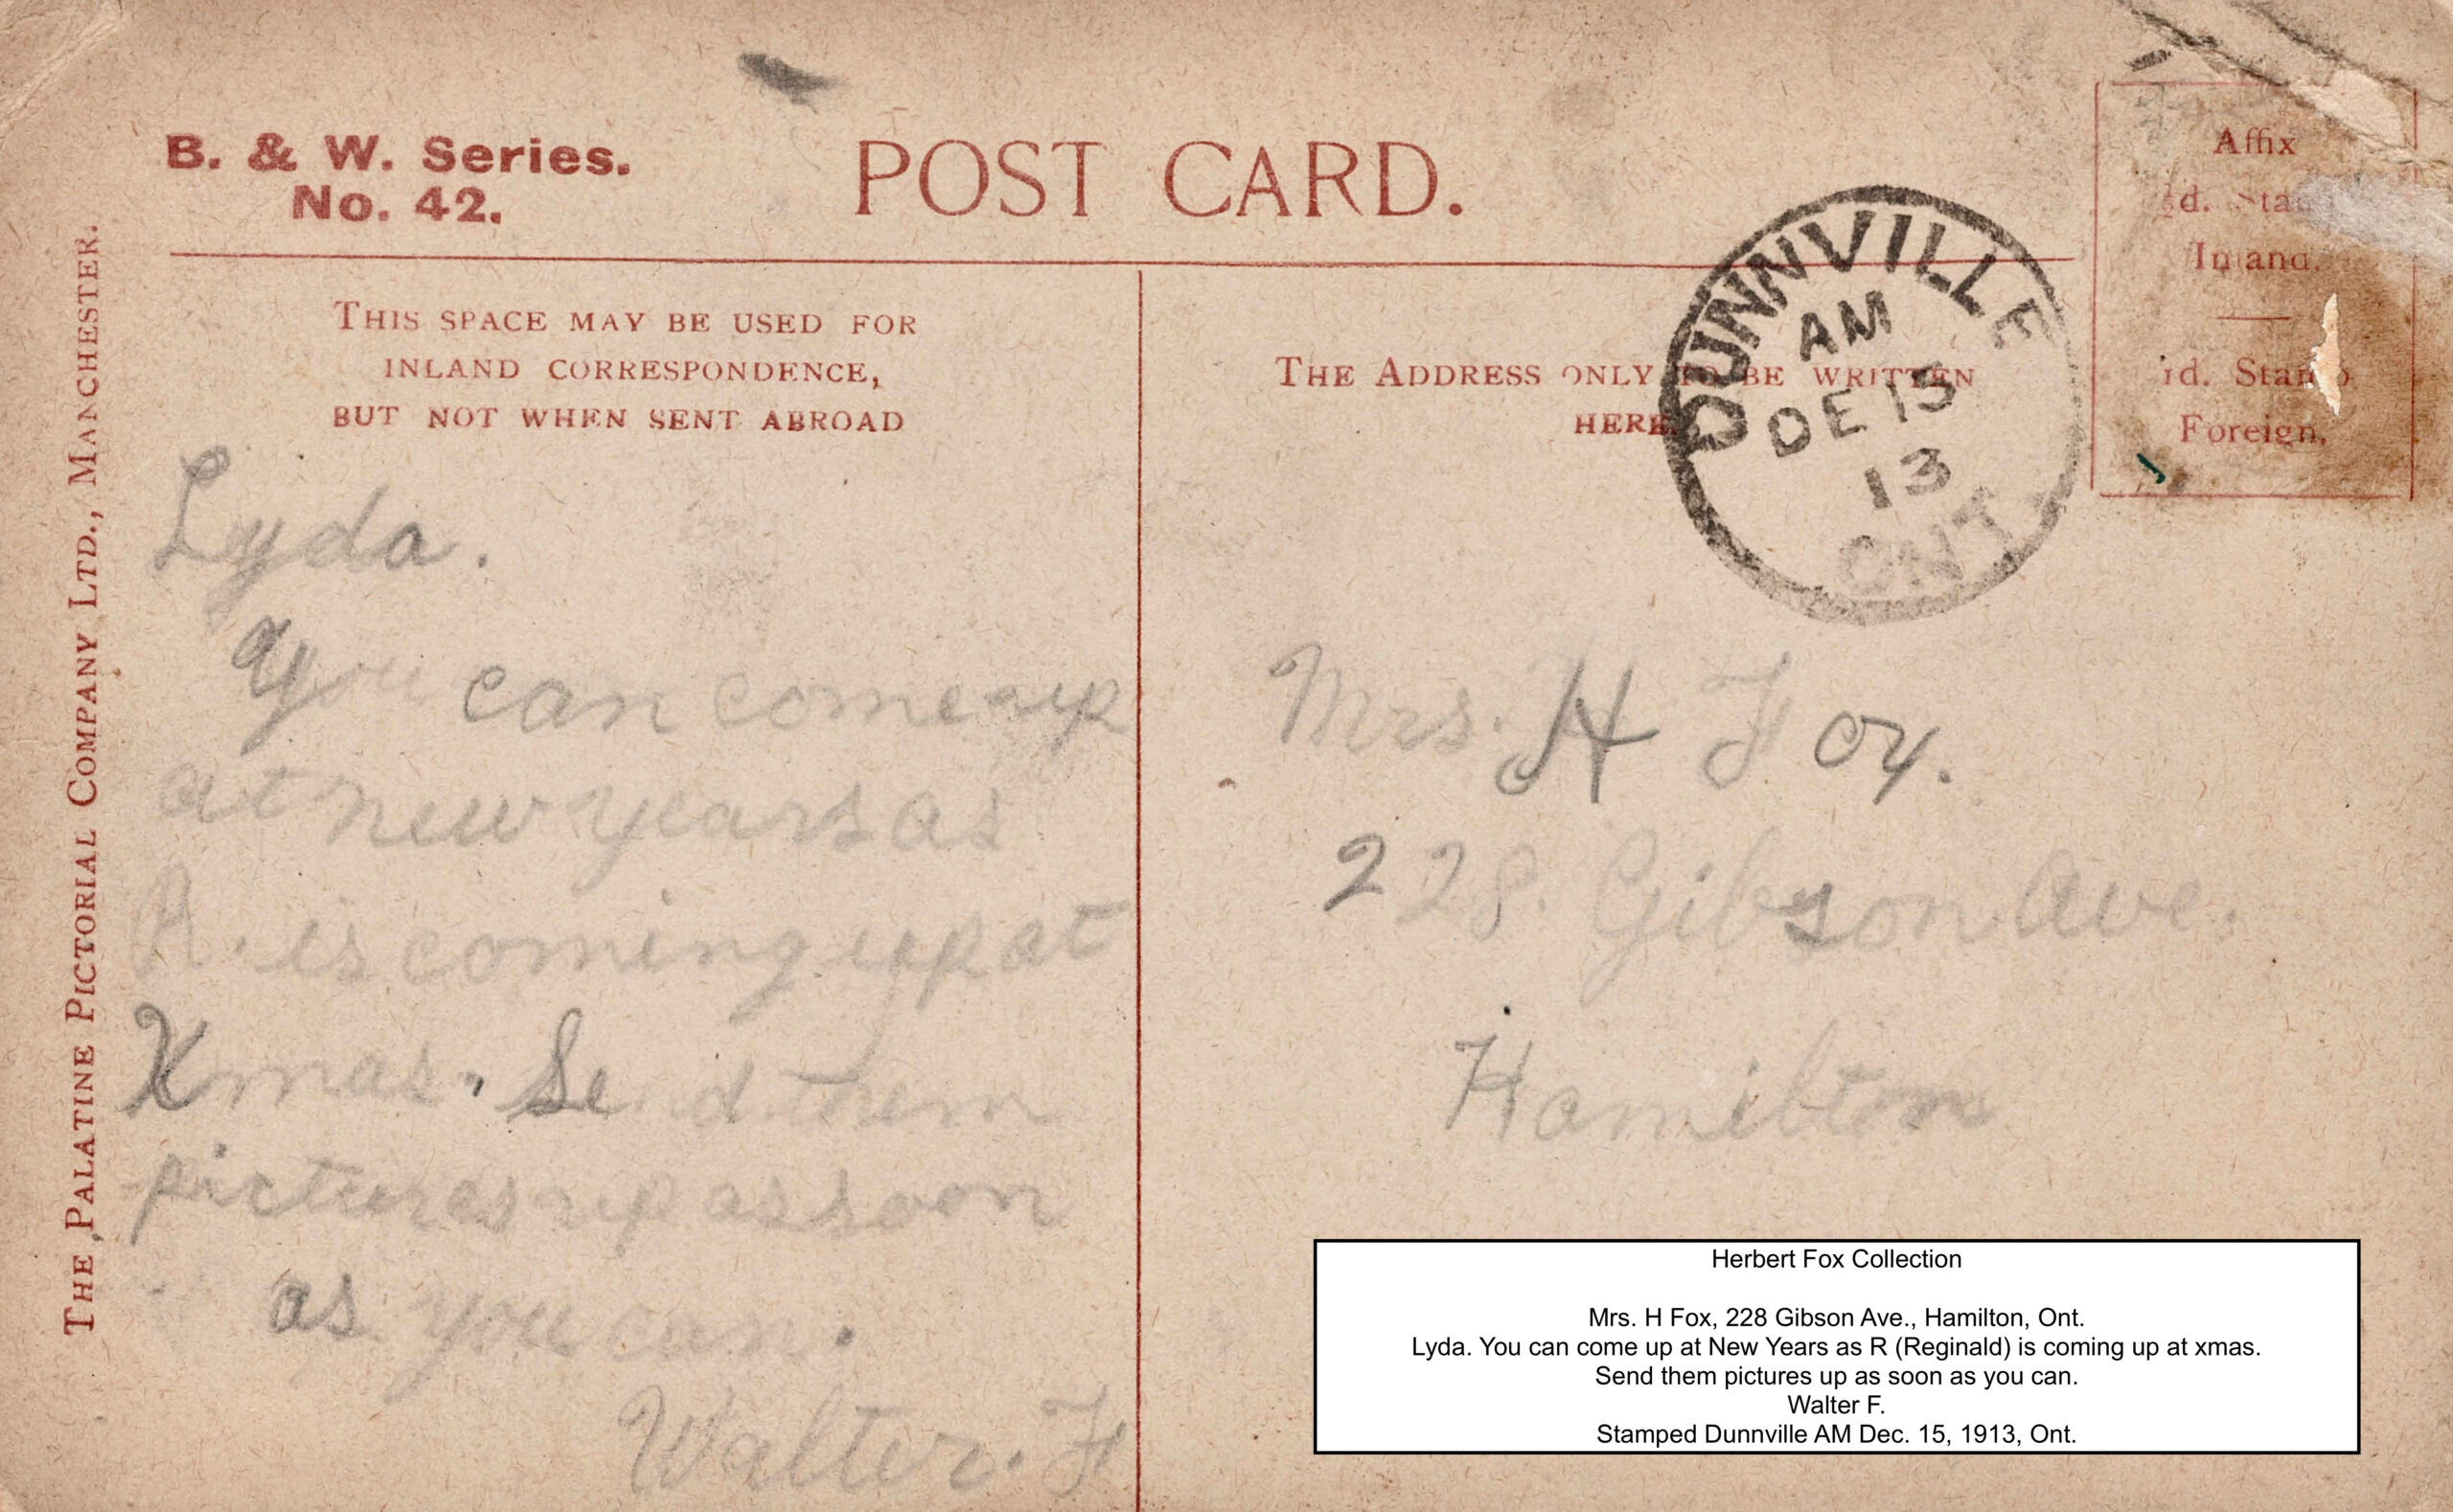 B. & W. Series.
No. 42.
POST CARD.
Affix
½d. Stamp
Inland.
1d. Stamp
Foreign.
THE PALATINE PICTORIAL COMPANY LTD., MANCHESTER.
THIS SPACE MAY BE USED FOR
INLAND CORRESPONDENCE,
BUT NOT WHEN SENT ABROAD
THE ADDRESS ONLY TO BE WRITTEN
HERE
DUNNVILLE
AM
DE 15
13
ONT.
Lyda.
You can come up
at new years as
R. is coming up at
Xmas. Send them
pictures up as soon
as you can.
Walter. F
Mrs. H Fox.
228. Gibson Ave.
Hamilton
Herbert Fox Collection
Mrs. H Fox, 228 Gibson Ave., Hamilton, Ont.
Lyda. You can come up at New Years as R (Reginald) is coming up at xmas.
Send them pictures up as soon as you can.
Walter F.
Stamped Dunnville AM Dec. 15, 1913, Ont.